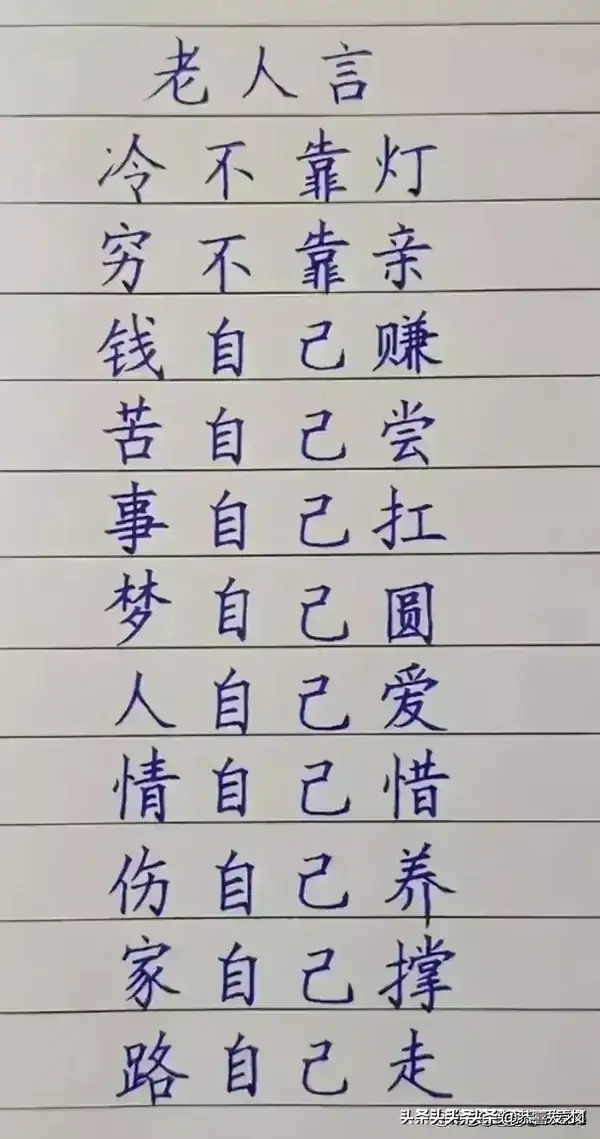 老人言
冷不靠灯
穷不靠亲
钱自己赚
苦自己尝
事自己扛
梦自己圆
人自己爱
情自己惜
伤自己养
家自己撑
路自己走